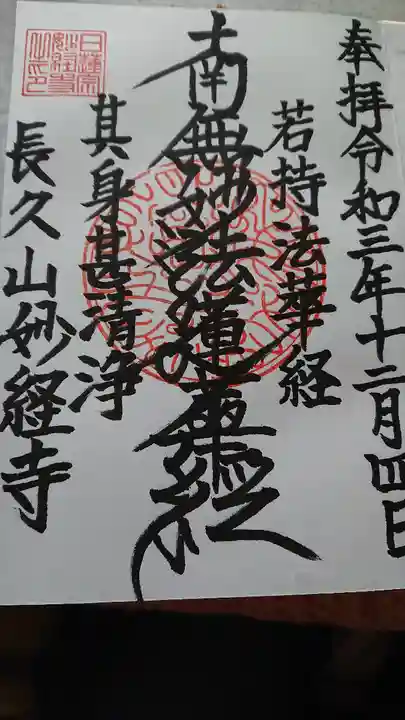 奉拝令和三年十二月四日
若持法華経
南無妙法蓮華経
其身甚清浄
長久山妙経寺
日蓮宗
妙経寺
之印